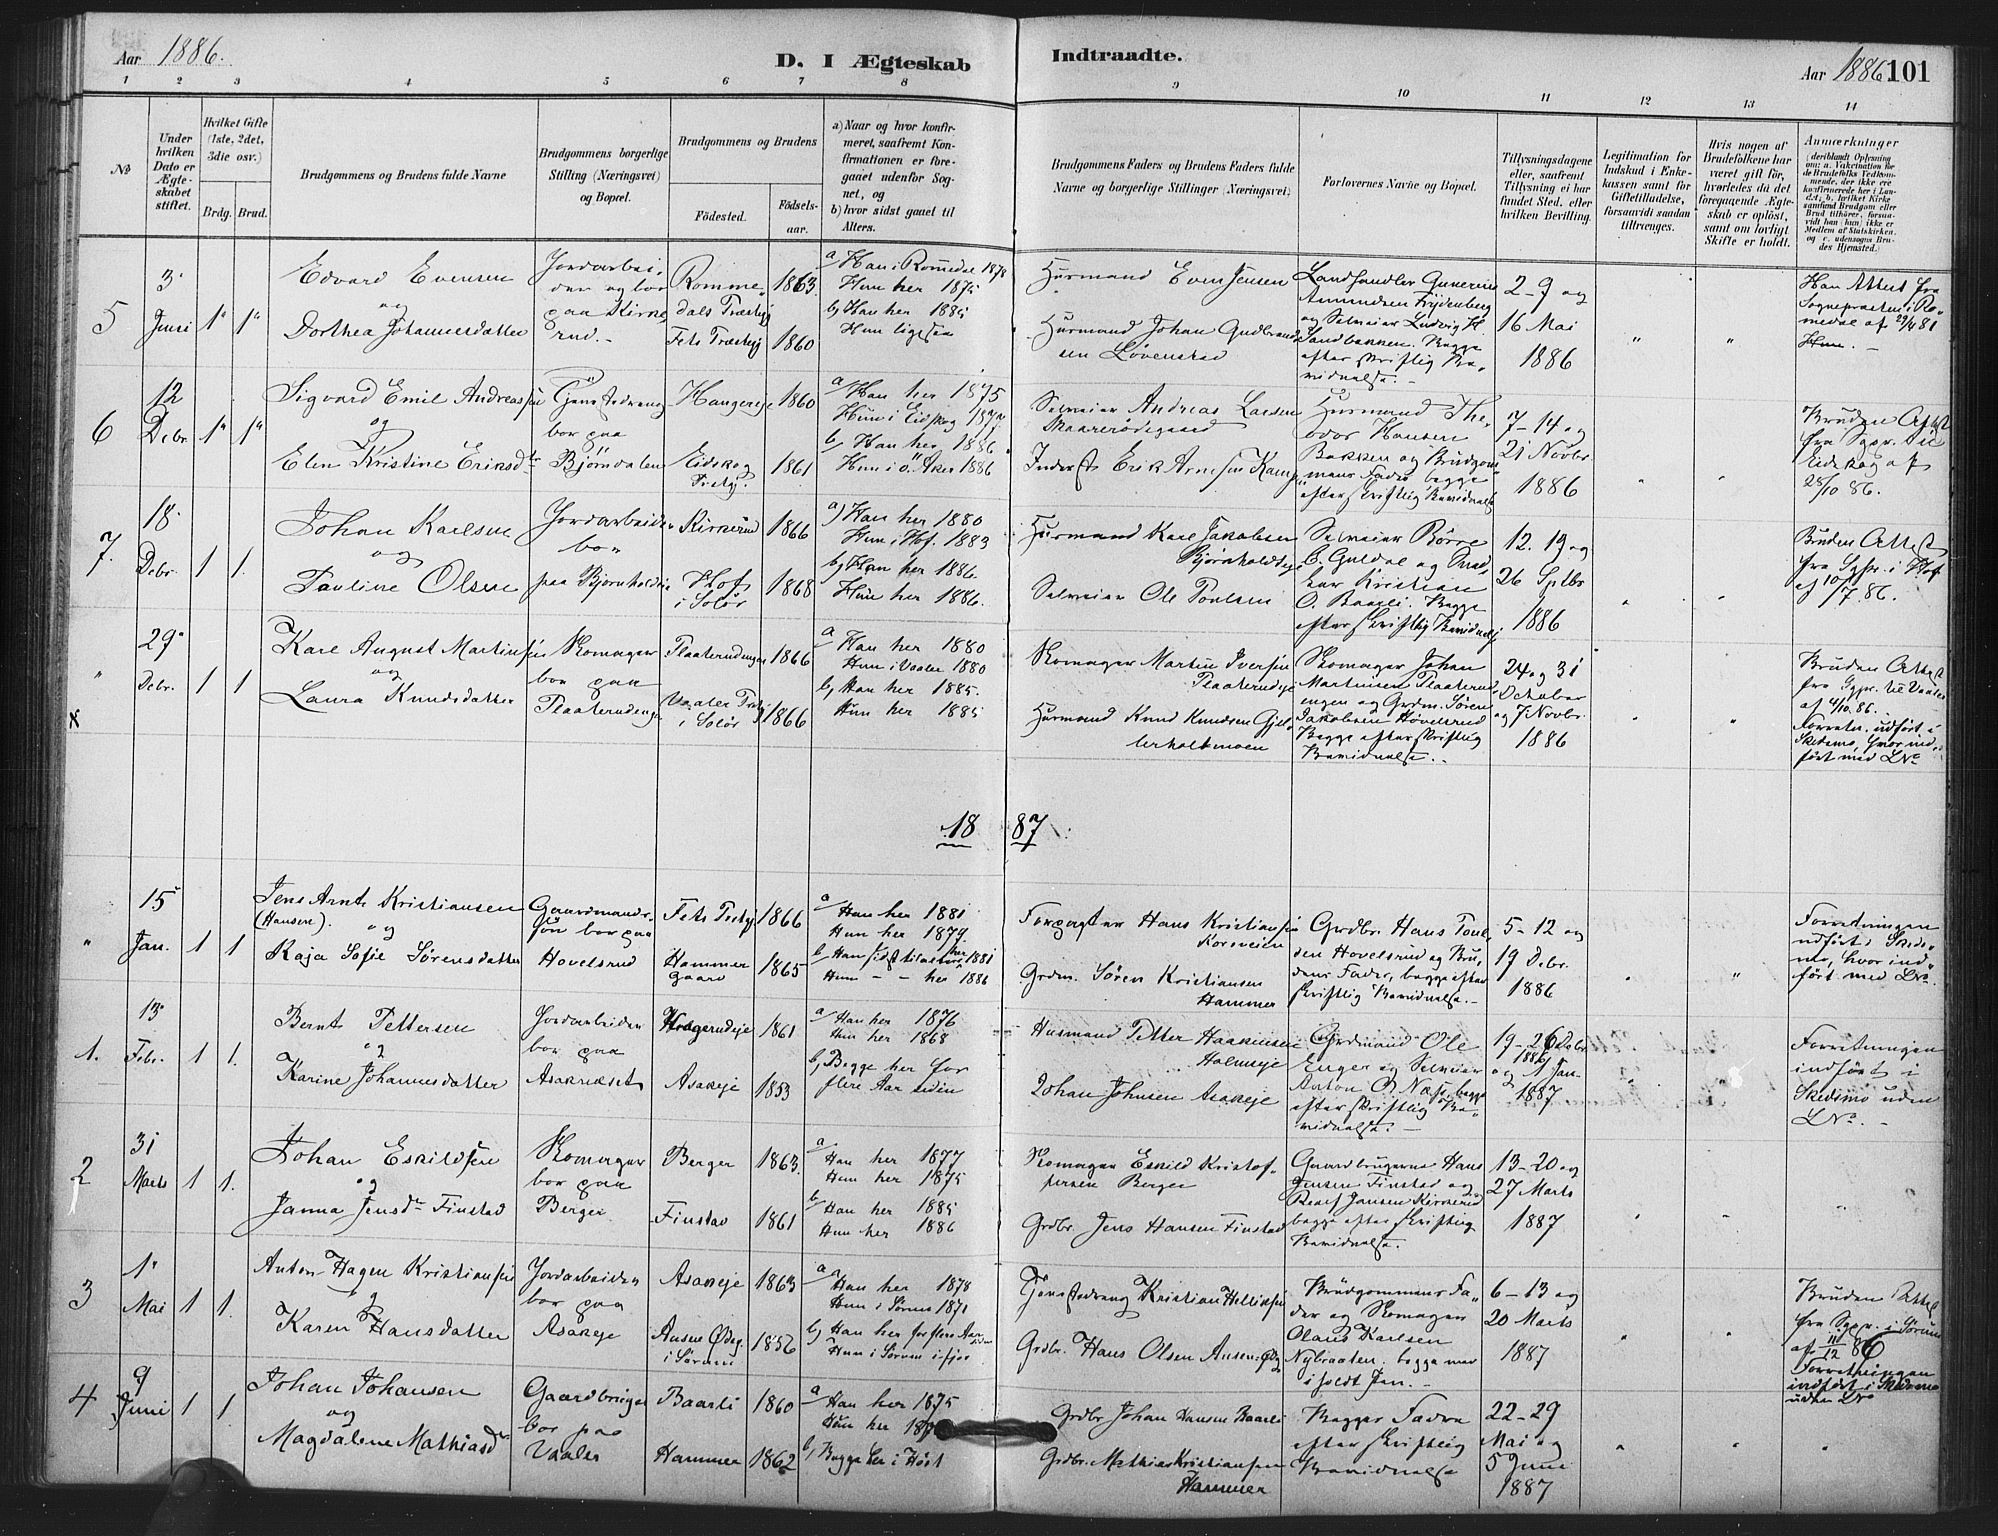 Aar 1886.
D. I Ægteskab Indtraadte.
Aar 1886 101
1 2 3 4 5 6 7 8 9 10 11 12 13 14
No
Under hvilken Dato er Ægteskabet stiftet.
Hvilket Gifte (1ste, 2det, 3die osv.)
Brdg. Brud.
Brudgommens og Brudens fulde Navne
Brudgommens borgerlige Stilling (Næringsvei) og Bopæl.
Brudgommens og Brudens
Fødested.
Fødselsaar.
a) Naar og hvor konfirmeret, saafremt Konfirmationen er foregaaet udenfor Sognet, og
b) hvor sidst gaaet til Alters.
Brudgommens Faders og Brudens Faders fulde Navne og borgerlige Stillinger (Næringsvei)
Forlovernes Navne og Bopæl.
Tillysningsdagene eller, saafremt Tillysning ei har fundet Sted, efter hvilken Bevilling.
Legitimation for Indskud i Enkekassen samt for Giftetilladelse, forsaavidt saadan tiltrænges.
Hvis nogen af Brudefolkene har været gift før, hvorledes da det foregaaende Ægteskab er opløst, samt om lovligt Skifte er holdt.
Anmerkninger
5
3 Juni
1" 1"
Edvard Evensen
og
Dorthea Johannesdatter
Jordarbeider og bor paa Kirkerud.
Rommedals Præstgj 1863.
Fets Præstgj 1860
a Han i Romedal 1878
Hun her 1875
b) Han her 1885
Hun ligesaa
Husmand Even Jensen
Husmand Johan Gudbrandsen Løvenstad
Landhandler Gunerius
Amundsen Frydenberg
og Selveier Ludvig H.
Sandbakken. Begge
efter skriftlig
2-9 og
16 Mai
1886
Han Attest fra
Sognepræsten i Romedal af 29/4 81
6
12 Debr.
1" 1"
Sigvard Emil Andreassen
og
Elen Kristine Eriksdtr
Tjenestedreng
bor paa
Bjørndalen
Haugereje 1860
Eidskog Prstgj. 1861
a/ Han her 1875
Hun i Eidskog 1877
b) Han her 1886
Hun i Ö Aker 1886
Selveier Andreas Larsen
Skaarerødegaard
Inderst Erik Arnesen Kamp
Husmand Theodor Hansen
Bakken og Brudgommens Fader begge
efter skriftlig
7-14 og
21 Novbr
1886
Bruden Attest
fra Sgpr. til
Eidskog af
25/10 86.
7.
18. Debr.
1 1.
Johan Karlsen
og
Pauline Olsen
Jordarbeider
bor
paa Bjørnholdt
Kirkerud 1866
Hof i Solør 1868
a) Han her 1880
Hun i Hof. 1883
b) Han her 1886
Hun her 1886.
Husmand Karl Jakobsen
Bjørnholdteje
Selveier Ole Poulsen
Selveier Børre
C. Guldal og
Kristian
O. Baarli. Begge
efter skriftlig
12. 19 og
26 Sptbr
1886
Bruden Attest
fra Sgpr. i Hof
af 10/7. 86.
"
X
29 Debr.
1 1
Karl August Martinsen
og
Laura Knudsdatter
Skomager
bor paa
Plaaterudengen
Plaaterudengen 1866
Vaaler Prstgj i Solør 1866
a/ Han her 1880
Hun i Vaaler 1880
b) Han her 1885.
Hun her 1885
Skomager Martin Iversen
Plaaterudeje
Husmand Knud Knudsen Gjellerholtmoen
Skomager Johan
Martinsen Plaaterudengen og Grdm. Søren
Jakobsen Høvelsrud
Begge efter skriftlig
24 og 31
Oktober
og 7 Novbr.
1886
Bruden Attest
fra Sgpr. til Vaaler
af 4/10. 86.
Forretn. udført i
Skedsmo, hvor indført med LNo
18 87
"
15 Jan.
1 1
Jens Arnt Kristiansen
(Hansen). og
Kaja Sofie Sørensdatter
Gaardmandssøn bor paa
Hovelsrud
Fets Prstgj 1866
Hammer gaard 1865
a/ Han her 1881
Hun her 1879.
b Han sidst til alters her 1881
Hun - - her 1886
Forpagter Hans Kristiansen
Korsveien
Grdm. Søren Kristiansen
Hammer
Grdbr. Hans
Hovelsrud og Brudens Fader, begge efter
skriftlig
5-12 og
19 Debr.
1886
Forretningen
udført i Skedsmo, hvor indført med LNo.
1.
13 Febr.
1 1.
Bernt Pettersen
og
Karine Johannesdatter
Jordarbeider
bor paa
Asakeiet
1861
Asakeje 1853
a/ Han her 1876
Hun her 1868
b, Begge her for
flere Aar siden
Husmand Petter Haakensen
Holmseje
Johan Johnsen Asakeje
Grdmand Ole
Enger og Selveier
Anton O. Næss, begge
efter skriftlig
19-26 Debr
1886
og 1 Jan.
1887
Forretningen
indført i
Skedsmo uden
LNo. -
2
31 Marts
1 1.
Johan Eskildsen
og
Janna Jensdr Finstad
Skomager
bor paa
Berger
Berger 1863.
Finstad 1861
a/ Han her 1877
Hun her 1875
b/ Han her 1885
Hun her 1886
Skomager Eskild Kristoffersen Berger
Grdbr. Jens Hansen Finstad
Gaardbrugerne Hans
Jensen Finstad og
Jansen Kirkerud
begge efter skriftlig
13-20 og
27 Marts
1887
3
1 Mai
1 1.
Anton Hagen Kristiansen
og
Karen Hansdatter
Jordarbeider
bor paa
Asakeje
Asakeje 1863
Ausen Ødeg. i Sørum 1856
a Han her 1878
Hun i Sørum 1871
b) Han her for flere Aar siden
Hun i Sørum ifjor
Tjenestedreng Kristian Helliksen
Grdbr. Hans Olsen Ausen
Brudgommens Fader og Skomager
Olaus Karlsen
Nybraaten. begge
6-13 og
20 Marts
1887
Bruden Attest
fra Sgpr. i Sørum
af 11/12 86
Forretningen
indført i Skedsmo
uden LNo
4
9 Juni
1 1
Johan Johansen
og
Magdalene Mathiasdr
Gaardbruger
bor paa
Vaaler
Baarli 1860
Hammer 1862
a Han her 1875
Hun her
b, Begge her i Høst
Grdbr Johan Hansen Baarli
Grdbr. Mathias Kristiansen
Hammer
Begges Fædre
efter skriftlig
22-29
Mai og
5 Juni
1887